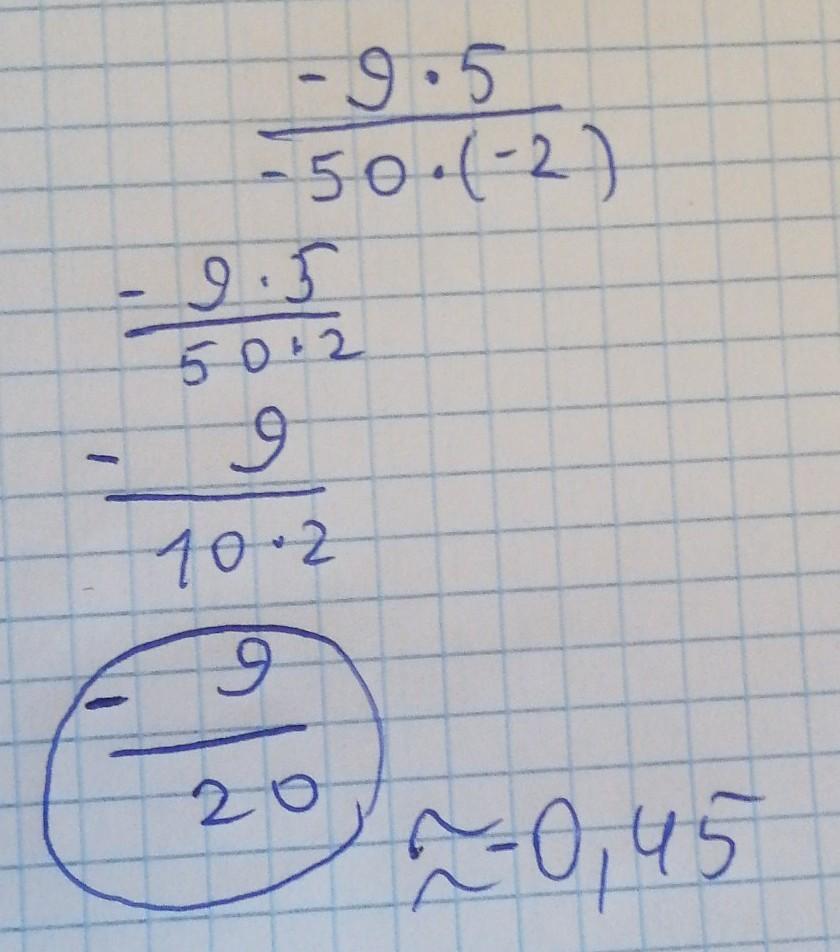 -9·5
-50·(-2)
-9·5
50·2
-9
10·2
-9
20
≈-0,45